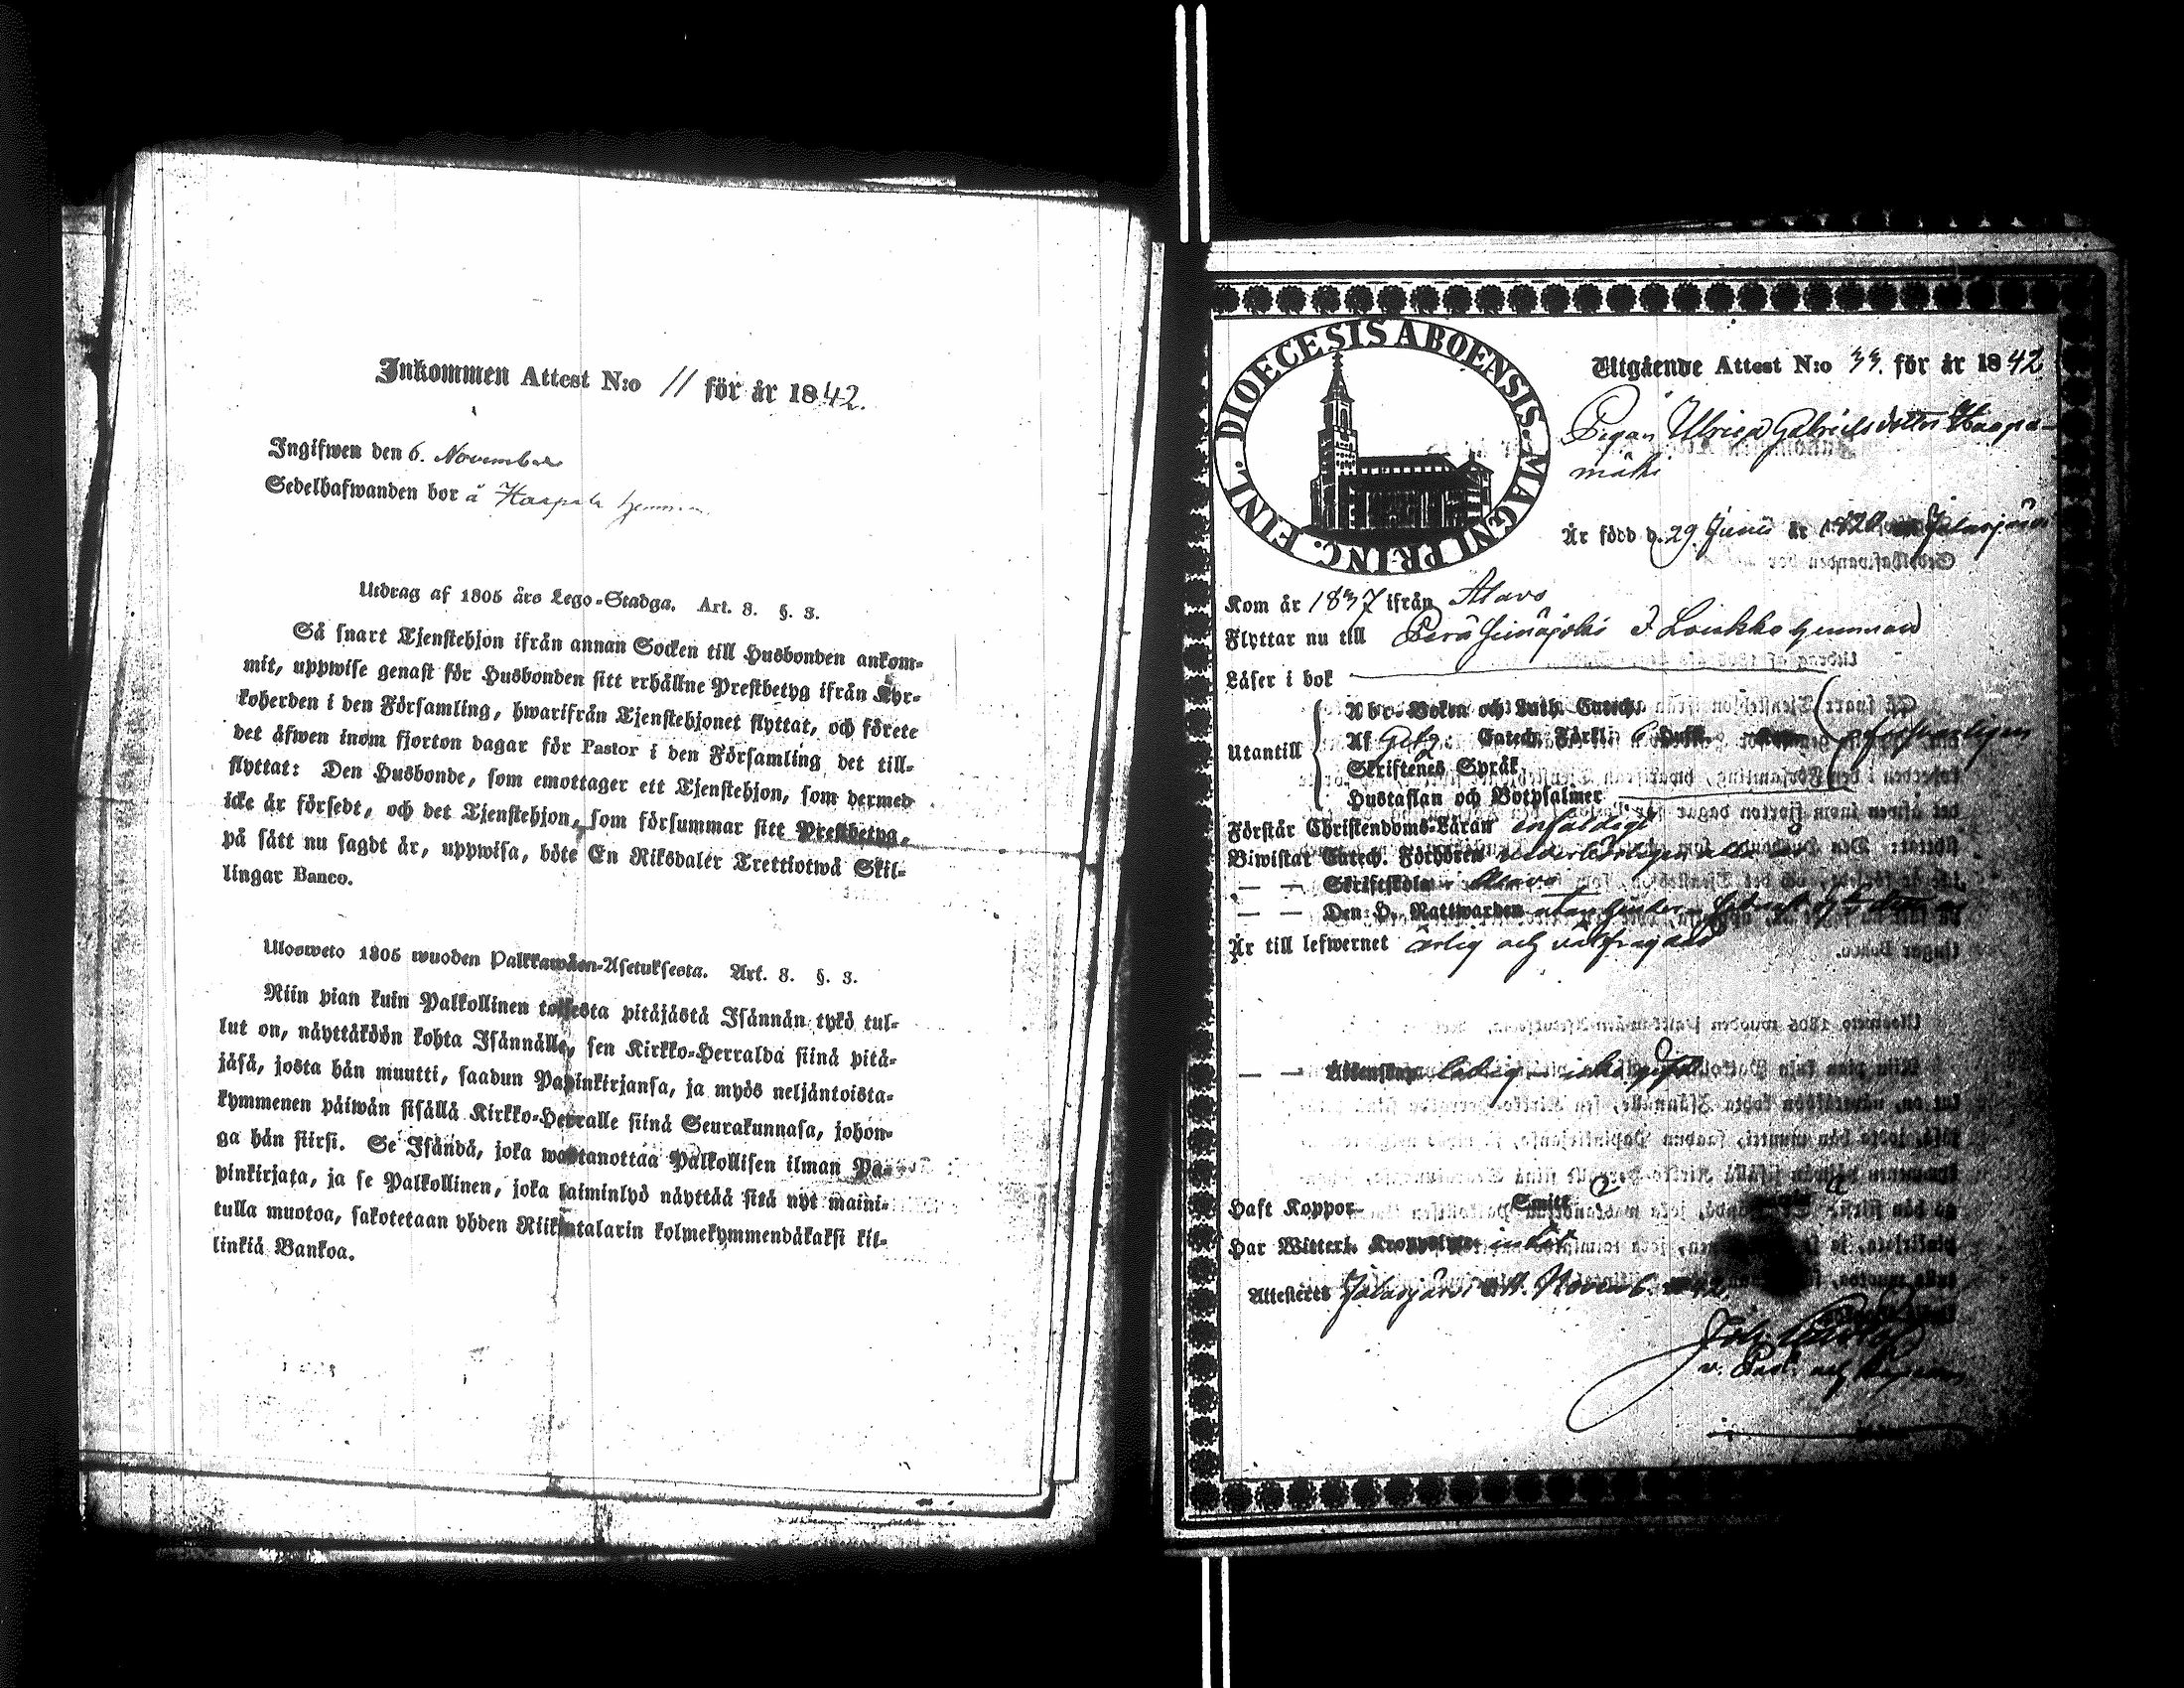 Inkommen Attest N:o 11 för år 1842.
Ingifwen den 6. November
Sedelhafwanden bor å Haapala hemman
Utdrag af 1805 års Lego-Stadga. Art. 8. §. 3.
Så snart Tjenstehjon ifrån annan Socken till Husbonden ankom-
mit, uppwise genast för Husbonden sitt erhållne Prestbetyg ifrån Kyr-
koherden i den Församling, hwarifrån Tjenstehjonet flyttat, och förete
det äfwen inom fjorton dagar för Pastor i den Församling det till-
flyttat: Den Husbonde, som emottager ett Tjenstehjon, som dermed
icke är försedt, och det Tjenstehjon, som försummar sitt Prestbetyg,
på sätt nu sagdt är, uppwisa, böte En Riksdaler Trettiotwå Skil-
lingar Banco.
Ulosweto 1805 wuoden Palkkawäen-Asetuksesta. Art. 8. §. 3.
Niin pian kuin Palkollinen toisesta pitäjästä Isännän tykö tul-
lut on, näyttäköön kohta Isännälle, sen Kirkko-Herralda siinä pitä-
jäsä, josta hän muutti, saadun Papinkirjansa, ja myös neljäntoista-
kymmenen päiwän sisällä Kirkko-Herralle siinä Seurakunnasa, johon-
ga hän siirsi. Se Isändä, joka wastanottaa Palkollisen ilman Pa-
pinkirjata, ja se Palkollinen, joka laiminlyö näyttää sitä nyt maini-
tulla muotoa, sakotetaan yhden Riikintalarin kolmekymmendäkaksi kil-
linkiä Bankoa.
DIOECESIS ABOENSIS. MAGNI PRINC. FINL.
Utgående Attest N:o 33. för år 1842
Pigan Ulrica Gabrielsdotter Haapa-
mäki
Är född d. 29 Junii år 1820 Jalasjärvi
Kom år 1837 ifrån Alavo
Flyttar nu till Perä Seinäjoki Loukko hemman
Läser i bok
Utantill
Abc-Boken och Luth. Catech.
Af Catech. Förkl. 6 Hufs. försvarligen
Skriftenes Språk
Hustaflan och Botpsalmer
Förstår Christendoms-Läran enfaldigt
Biwistat Catech. Förhören
— — Skriftskola Alavo
— — Den H. Nattwarden
Är till lefwernet ärlig och välfrägdad
— — Äktenskap ledig
Haft Koppor
Har Witterl. Kroppslyte intet
Attesteras Jalasjärvi Novemb. 1842
Joh.
v. Past. och